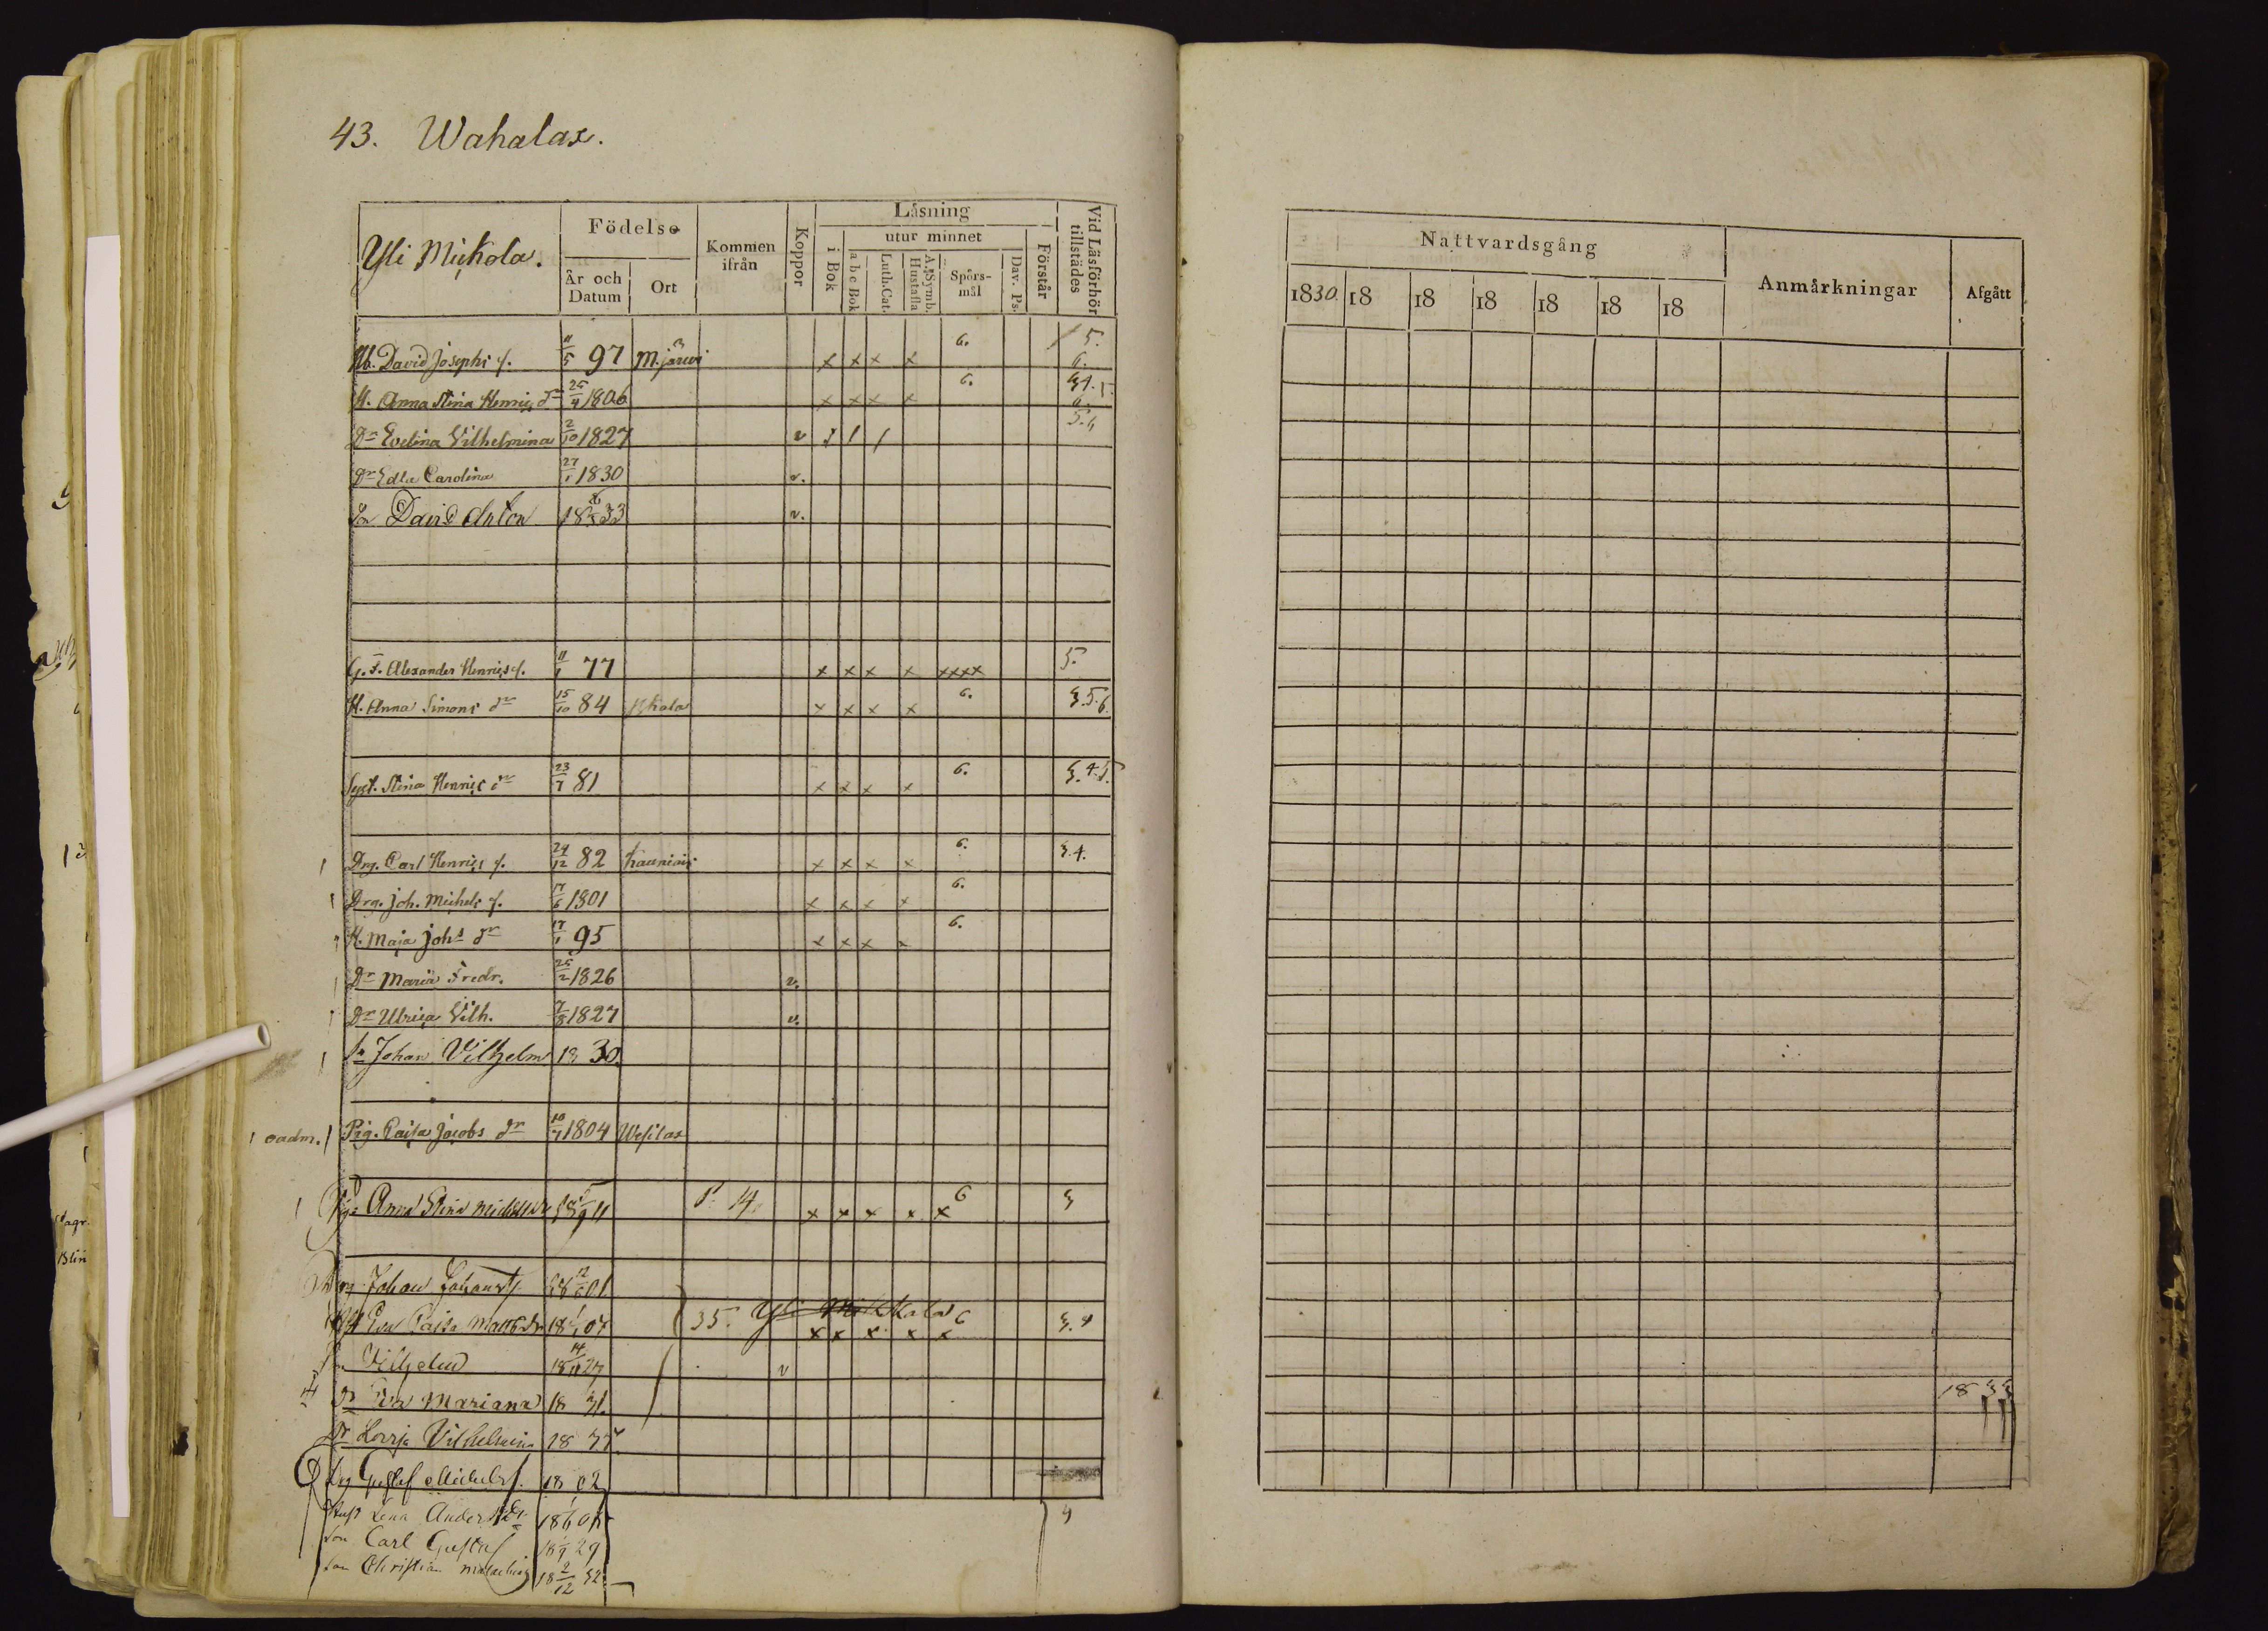 43. Wahalax.
Yli Mickola.
Födelse
År och Datum
Ort
Kommen ifrån
Koppor
Läsning
i Bok
utur minnet
a b c Bok
Luth. Cat.
A. Symb. Hustafla
Spörsmål
Dav. Ps.
Förstår
Vid Läsförhör tillstädes
David Josephs s. 11/5 97 M.järwi x x x x 6. 5. 6.
H. Anna Stina Henrics dr 25/4 1806 x x x x 6.
Dr Evelina Vilhelmina 2/10 1827 v 5.
Dr Edla Carolina 27/1 1830 v.
Son David Anton 1833 v.
G. F. Alexander Henrics s. 11/1 77 x x x x xxxx 5.
H. Anna Simons dr 15/10 84 x x x x 6. 3.5.6.
Syst. Stina Henrics dr 23/7 81 x x x x 6. 3.4.5.
Drg. Carl Henrics s. 24/12 82 x x x x 6. 3.4.
Drg. Joh. Michels s. 1801 x x x x 6.
H. Maja Johs dr 17/1 95 x x x x 6.
Dr Maria Fredr. 25/2 1826 v.
Dr Ulrica Vilh. 1827 v.
Sn Johan Vilhelm 1830.
oadm. Pig. Caisa Jacobs dr 1804 Wesilax
Anna Stina 11 14 x x x x x 6 3
Johan Johans s. 01
Eva Caisa Matts dr 18 07 35. Yli Mikkala 6 x x x x x 3.4
Vilhelm 18 14/11 27 v
Dr Eva Mariana 18 31. 1833
Dr Lovisa Vilhelmina 18
Drg Gustaf Michels s. 18 02
Hust Lena Anders dr 18 4
Son Carl Gustaf 18 29
Son Christian 18 2/12 32
Nattvardsgång
1830 18 18 18 18 18 18
Anmärkningar
Afgått